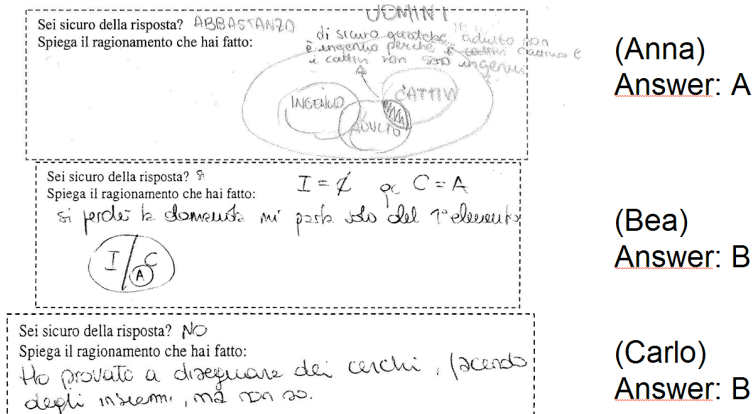 UOMINI
Sei sicuro della risposta? ABBASTANZA
Spiega il ragionamento che hai fatto:
di sicuro qualche adulto non
è ingenuo perché è cattivo e
i cattivi non sono ingenui
INGENUO
CATTIVI
ADULTO
(Anna)
Answer: A
Sei sicuro della risposta? sì
Spiega il ragionamento che hai fatto:
I = ₵ C = A
si perché la domanda mi parla solo del 1° elemento
I / C
A
(Bea)
Answer: B
Sei sicuro della risposta? NO
Spiega il ragionamento che hai fatto:
Ho provato a disegnare dei cerchi, facendo
degli insiemi, ma non so.
(Carlo)
Answer: B